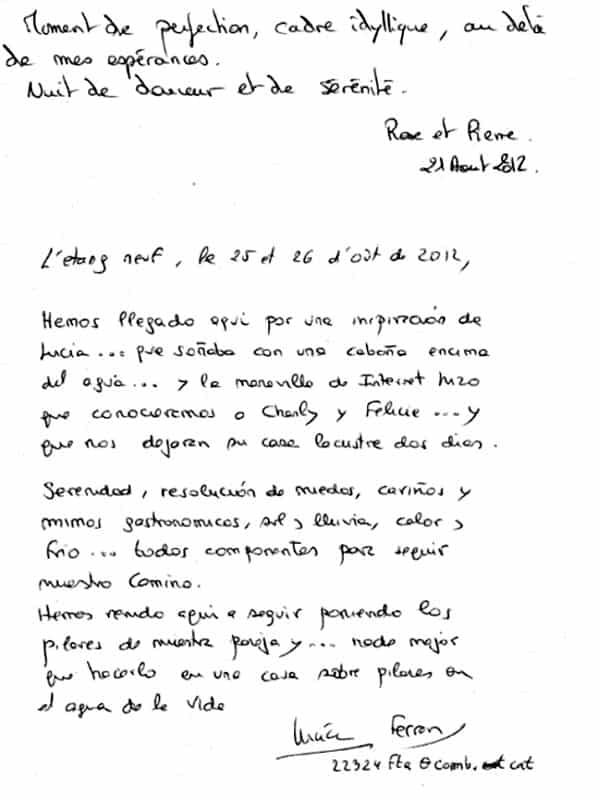 Moment de perfection, cadre idyllique, au delà
de mes espérances.
Nuit de douceur et de sérénité.
Rose et Pierre.
21 Aout 2012.
L'etang neuf, le 25 et 26 d'oût de 2012,
Hemos llegado aqui por una inspiración de
Lucia... que soñaba con una cabaña encima
del agua... y la maravilla de Internet hizo
que conocieramos a Charly y Felicie... y
que nos dejaran su casa lacustre dos dias.
Serenidad, resolución de miedos, cariños y
mimos gastronomicos, sol y lluvia, calor y
frio... todos componentes para seguir
nuestro Camino.
Hemos venido aqui a seguir poniendo los
pilares de nuestra pareja y... nada mejor
que hacerlo en una casa sobre pilares en
el agua de la vida
Lucía Ferran
22324 fta @ comb. cat